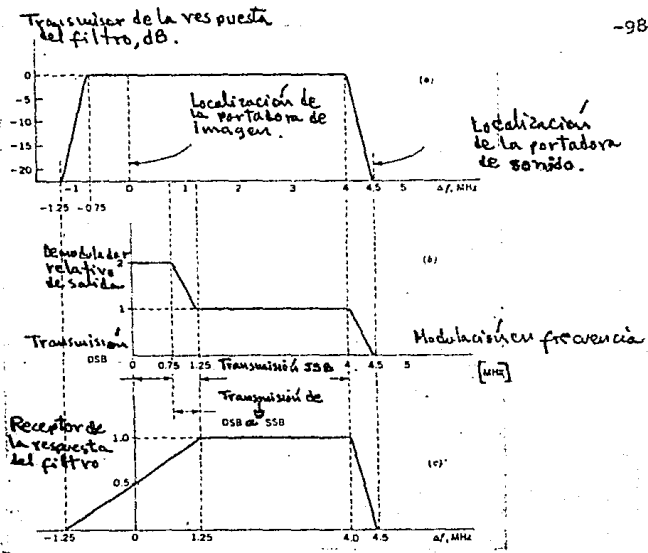 Transmisor de la respuesta
del filtro, dB.
-98
0
-5
-10
-15
-20
(a)
Localización de
la portadora de
imagen.
Localización
de la portadora
de sonido.
-1 0 1 2 3 4 4.5 5 Δf, MHz
-1.25 -0.75
Demodulador
relativo
de salida
2
1
(b)
Transmisión
DSB
Modulación en frecuencia
0 0.75 1.25 Transmisión SSB 4 4.5 5 [MHz]
Transmisión de
DSB a SSB
Receptor de
la respuesta
del filtro
1.0
0.5
(c)
-1.25 0 1.25 4.0 4.5 Δf, MHz